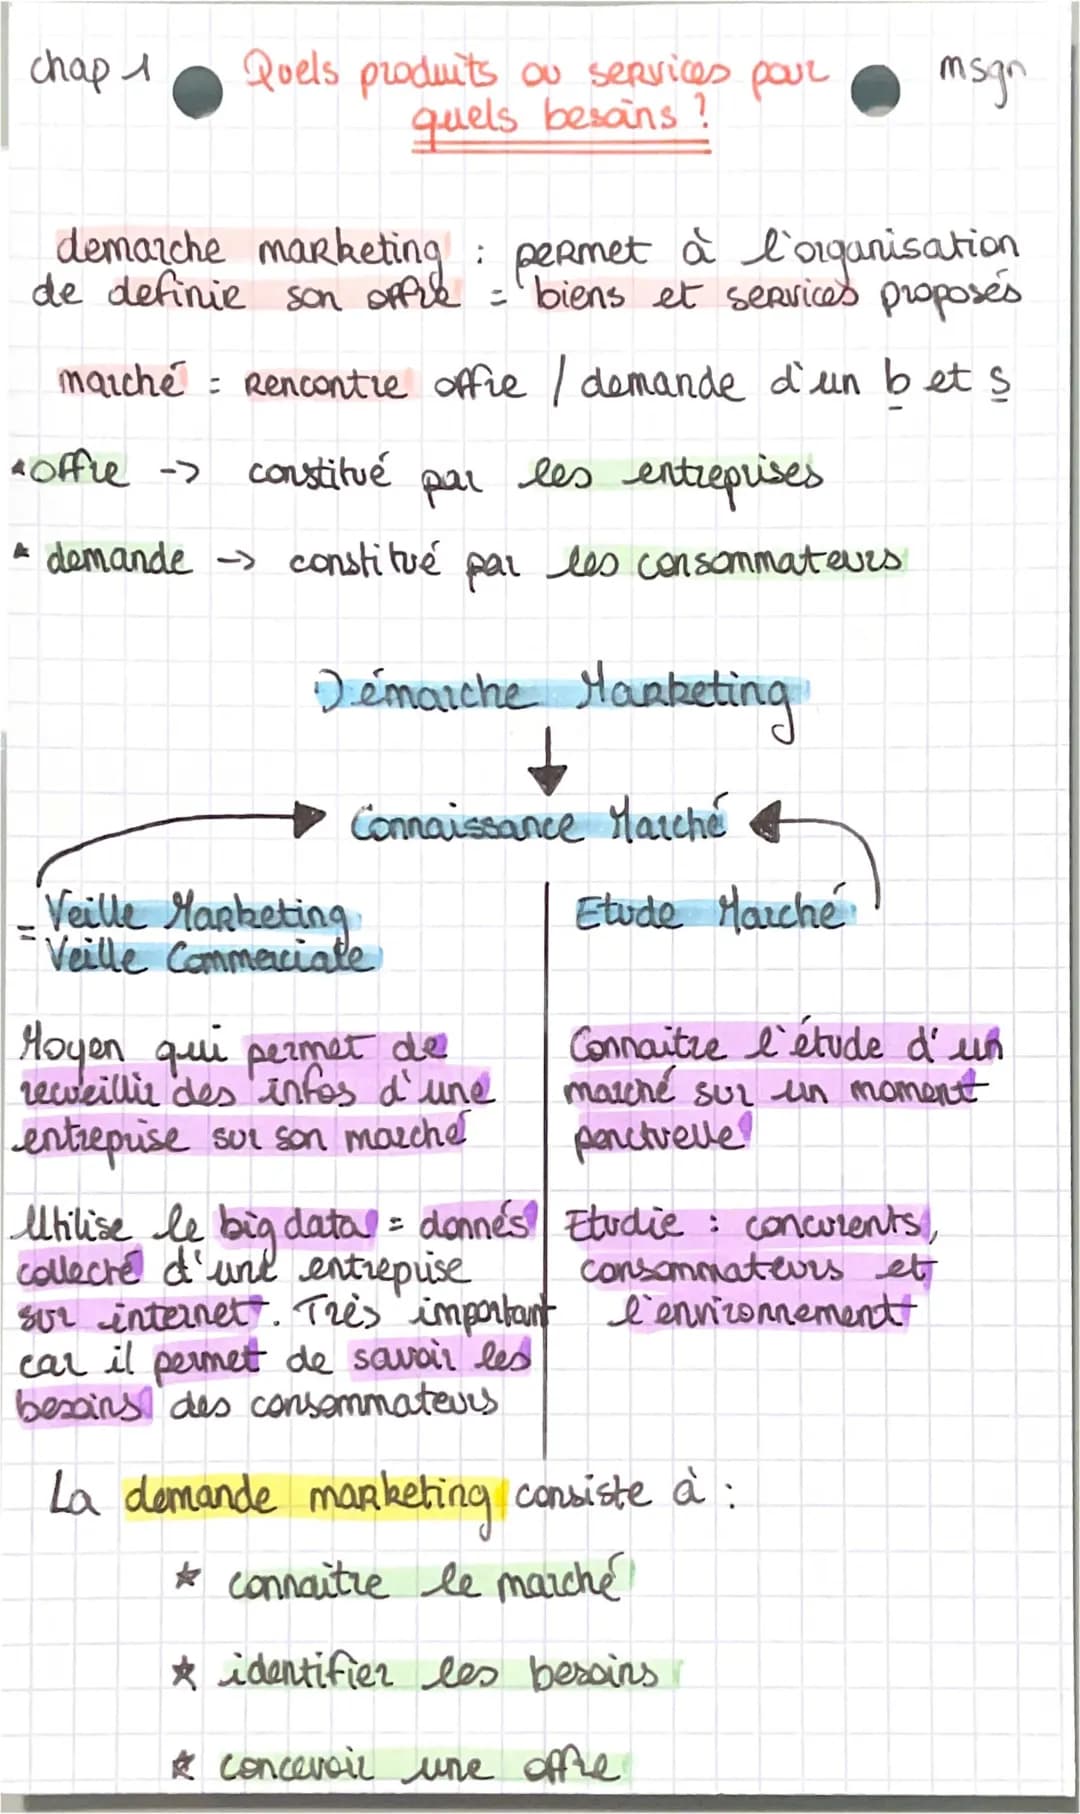 chap 1
Quels produits ou services pour
quels besoins ?
msgn
demarche marketing : permet à l'organisation
de definir son offre = biens et services proposés
marché = Rencontre offre / demande d'un b et s
offre -> constitué par les entreprises
demande -> constitué par les consommateurs
Démarche Marketing
Connaissance Marché
= Veille Marketing
Veille Commerciale
Moyen qui permet de
recueillir des infos d'une
entreprise sur son marché
Utilise le big data = donnés
collecté d'une entreprise
sur internet. Très important
car il permet de savoir les
besoins des consommateurs
Etude Marché
Connaitre l'étude d'un
marché sur un moment
ponctuelle
Etudie : concurents,
consommateurs et
l'environnement
La demande marketing consiste à :
* connaitre le marché
* identifier les besoins
* concevoir une offre